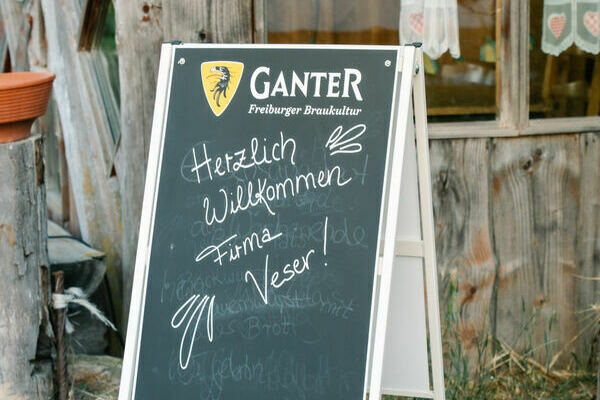 GANTER
Freiburger Braukultur
Herzlich
Willkommen
Firma
Veser!